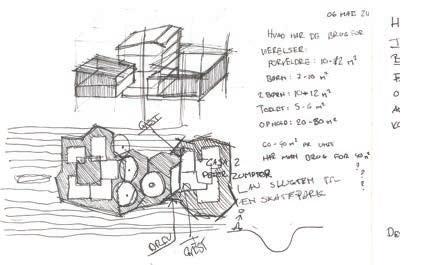 06 MAI 24
HVAD HAR DE BRUG FOR
VÆRELSER:
FORÆLDRE: 10-12 m²
BØRN: 7-10 m²
2 BØRN: 10-12 m²
TOILET: 5-6 m²
OPHOLD: 20-80 m²
60-90 m² PR UNIT
HAR MAN BRUG FOR 90 m²
?
?
?
GÆST
CASA 2
PETER ZUMPTOR
LAV SLUGTEN TIL
EN SKATEPARK
GÆST
H